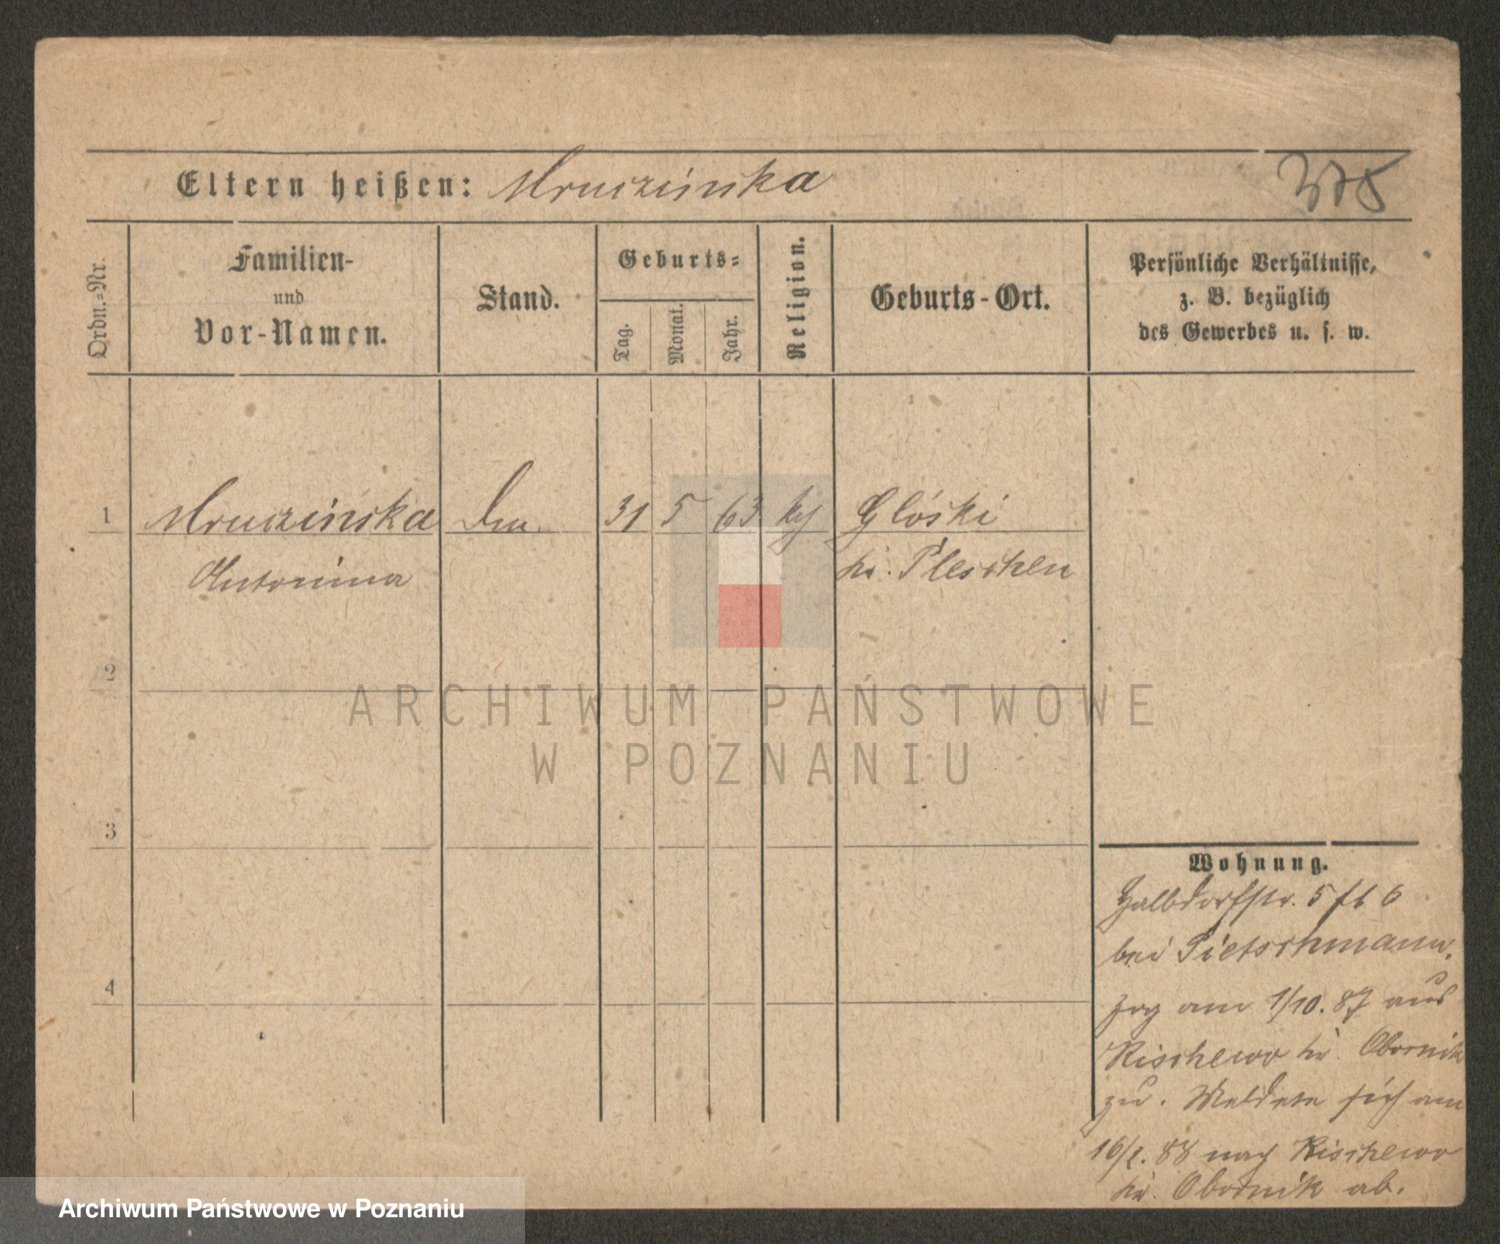 Eltern heißen: Mruczinska
Ordn.-Nr.
Familien-
und
Vor-Namen.
Stand.
Geburts-
Tag.
Monat.
Jahr.
Religion.
Geburts-Ort.
Persönliche Verhältnisse,
z. B. bezüglich
des Gewerbes u. s. w.
1 Mruczinska 31 5 63 kth Glóski
Antonina kr. Pleschen
2
3
4
Wohnung.
Halbdorfstr. 5
bei Pietschmann.
zog am 1/10. 87 aus
Rischewo kr. Obornik
zu. Meldete sich am
88 nach Rischewo
kr. Obornik ab.
ARCHIWUM PAŃSTWOWE
W POZNANIU
Archiwum Państwowe w Poznaniu